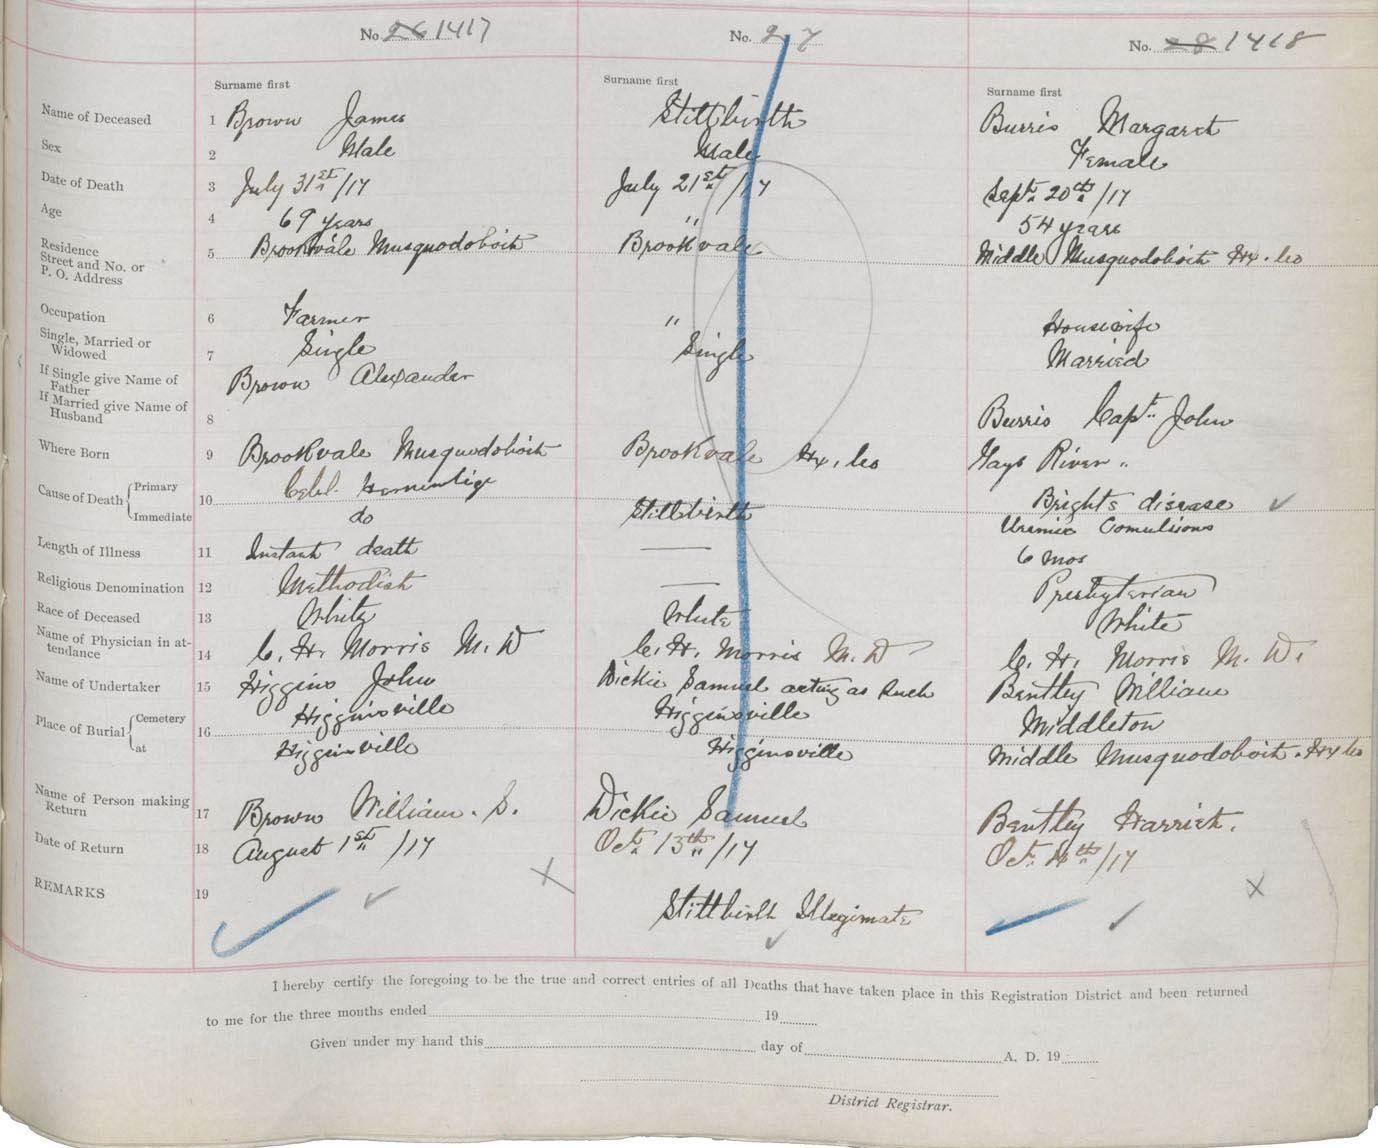 No. 26 1417 No. 27 No. 28 1418
Surname first Surname first Surname first
Name of Deceased 1 Brown James Stillbirth Burris Margaret
Sex 2 Male Male Female
Date of Death 3 July 31st/17 July 21st/17 Sept. 20th/17
Age 4 69 years " 54 years
Residence
Street and No. or
P. O. Address 5 Brookvale Musquodoboit Brookvale Middle Musquodoboit Hx. Co
Occupation 6 Farmer " Housewife
Single, Married or
Widowed 7 Single Single Married
If Single give Name of
Father Brown Alexander
If Married give Name of
Husband 8 Burris Capt. John
Where Born 9 Brookvale Musquodoboit Brookvale Hx. Co Gays River "
Cause of Death Primary 10 Cebl. Brights disease
Immediate do Stillbirth Uremic Convulsions
Length of Illness 11 Instant death — 6 mos
Religious Denomination 12 Methodist — Presbyterian
Race of Deceased 13 White White White
Name of Physician in at-
tendance 14 C. H. Morris M. D C. H. Morris M. D C. H. Morris M. D.
Name of Undertaker 15 Higgins John Dickie Samuel acting as Such Bentley William
Place of Burial Cemetery 16 Higginsville Higginsville Middleton
at Higginsville Higginsville Middle Musquodoboit. Hx Co
Name of Person making
Return 17 Brown William. S. Dickie Samuel Bentley Harriet.
Date of Return 18 August 1st/17 Oct. 13th/17 Oct. 14th/17
REMARKS 19 Stillbirth Illegimate
I hereby certify the foregoing to be the true and correct entries of all Deaths that have taken place in this Registration District and been returned
to me for the three months ended 19
Given under my hand this day of A. D. 19
District Registrar.